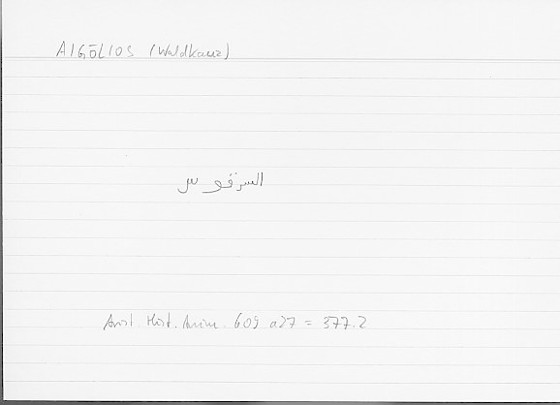 AIGŌLIOS (Waldkauz)
Arist. Hist. Anim. 609 a27 = 377.2